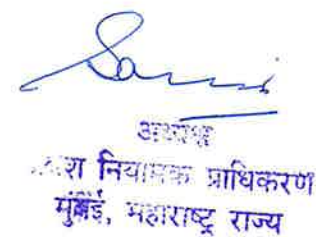 अध्यक्ष
नियामक प्राधिकरण
मुंबई, महाराष्ट्र राज्य